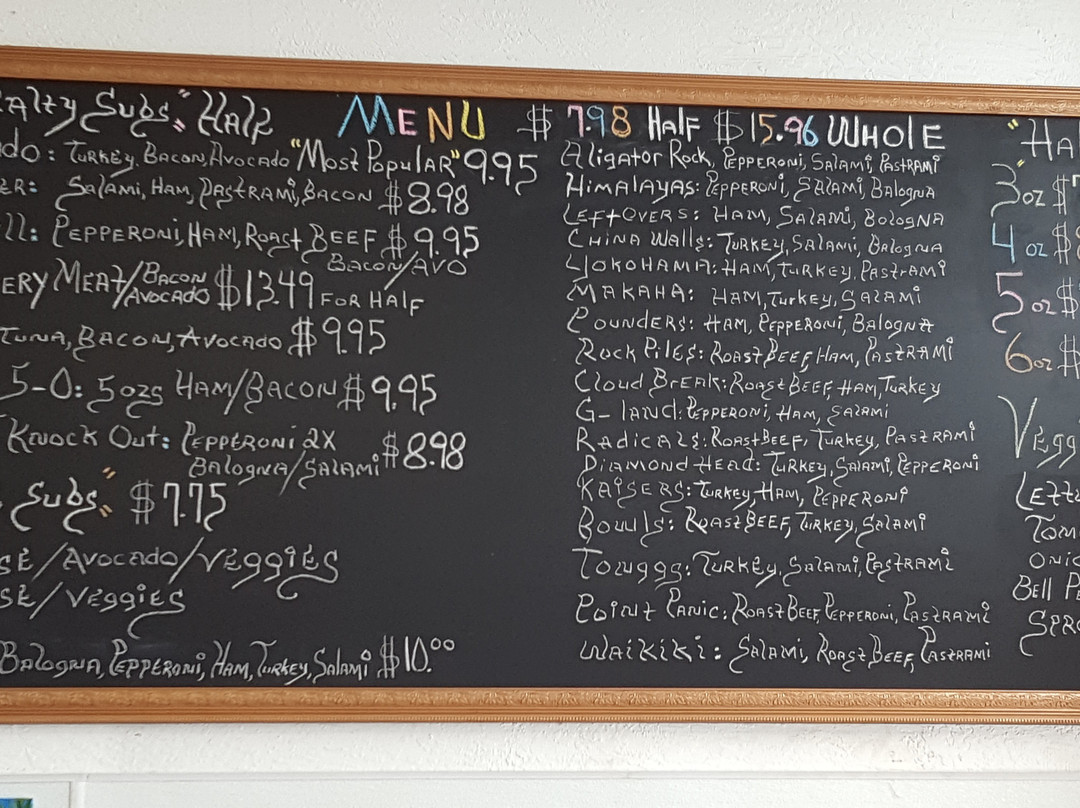 Subs." Half
MENU
Turkey, Bacon, Avocado "Most Popular" 9.95
Salami, Ham, Pastrami, Bacon $8.98
Pepperoni, Ham, Roast Beef $9.95
Bacon/Avo
ery Meat/Bacon Avocado $13.49 for Half
Tuna, Bacon, Avocado $9.95
5-O: 5ozs Ham/Bacon $9.95
Knock Out: Pepperoni 2x
Balogna/Salami $8.98
Subs." $7.75
/Avocado/Veggies
/Veggies
Balogna, Pepperoni, Ham, Turkey, Salami $10.00
$7.98 Half $15.96 Whole
Aligator Rock, Pepperoni, Salami, Pastrami
Himalayas: Pepperoni, Salami, Balogna
Leftovers: Ham, Salami, Bologna
China Walls: Turkey, Salami, Balogna
Yokohama: Ham, Turkey, Pastrami
Makaha: Ham, Turkey, Salami
Pounders: Ham, Pepperoni, Balogna
Rock Piles: Roast Beef, Ham, Pastrami
Cloud Break: Roast Beef, Ham, Turkey
G-land: Pepperoni, Ham, Salami
Radicals: Roast Beef, Turkey, Pastrami
Diamond Head: Turkey, Salami, Pepperoni
Kaisers: Turkey, Ham, Pepperoni
Bowls: Roast Beef, Turkey, Salami
Townggs: Turkey, Salami, Pastrami
Point Panic: Roast Beef, Pepperoni, Pastrami
Waikiki: Salami, Roast Beef, Pastrami
"Ha
3oz $
4 oz $
5oz $
6oz $
Vegg
Lett
Tom
Onio
Bell Pe
Spro